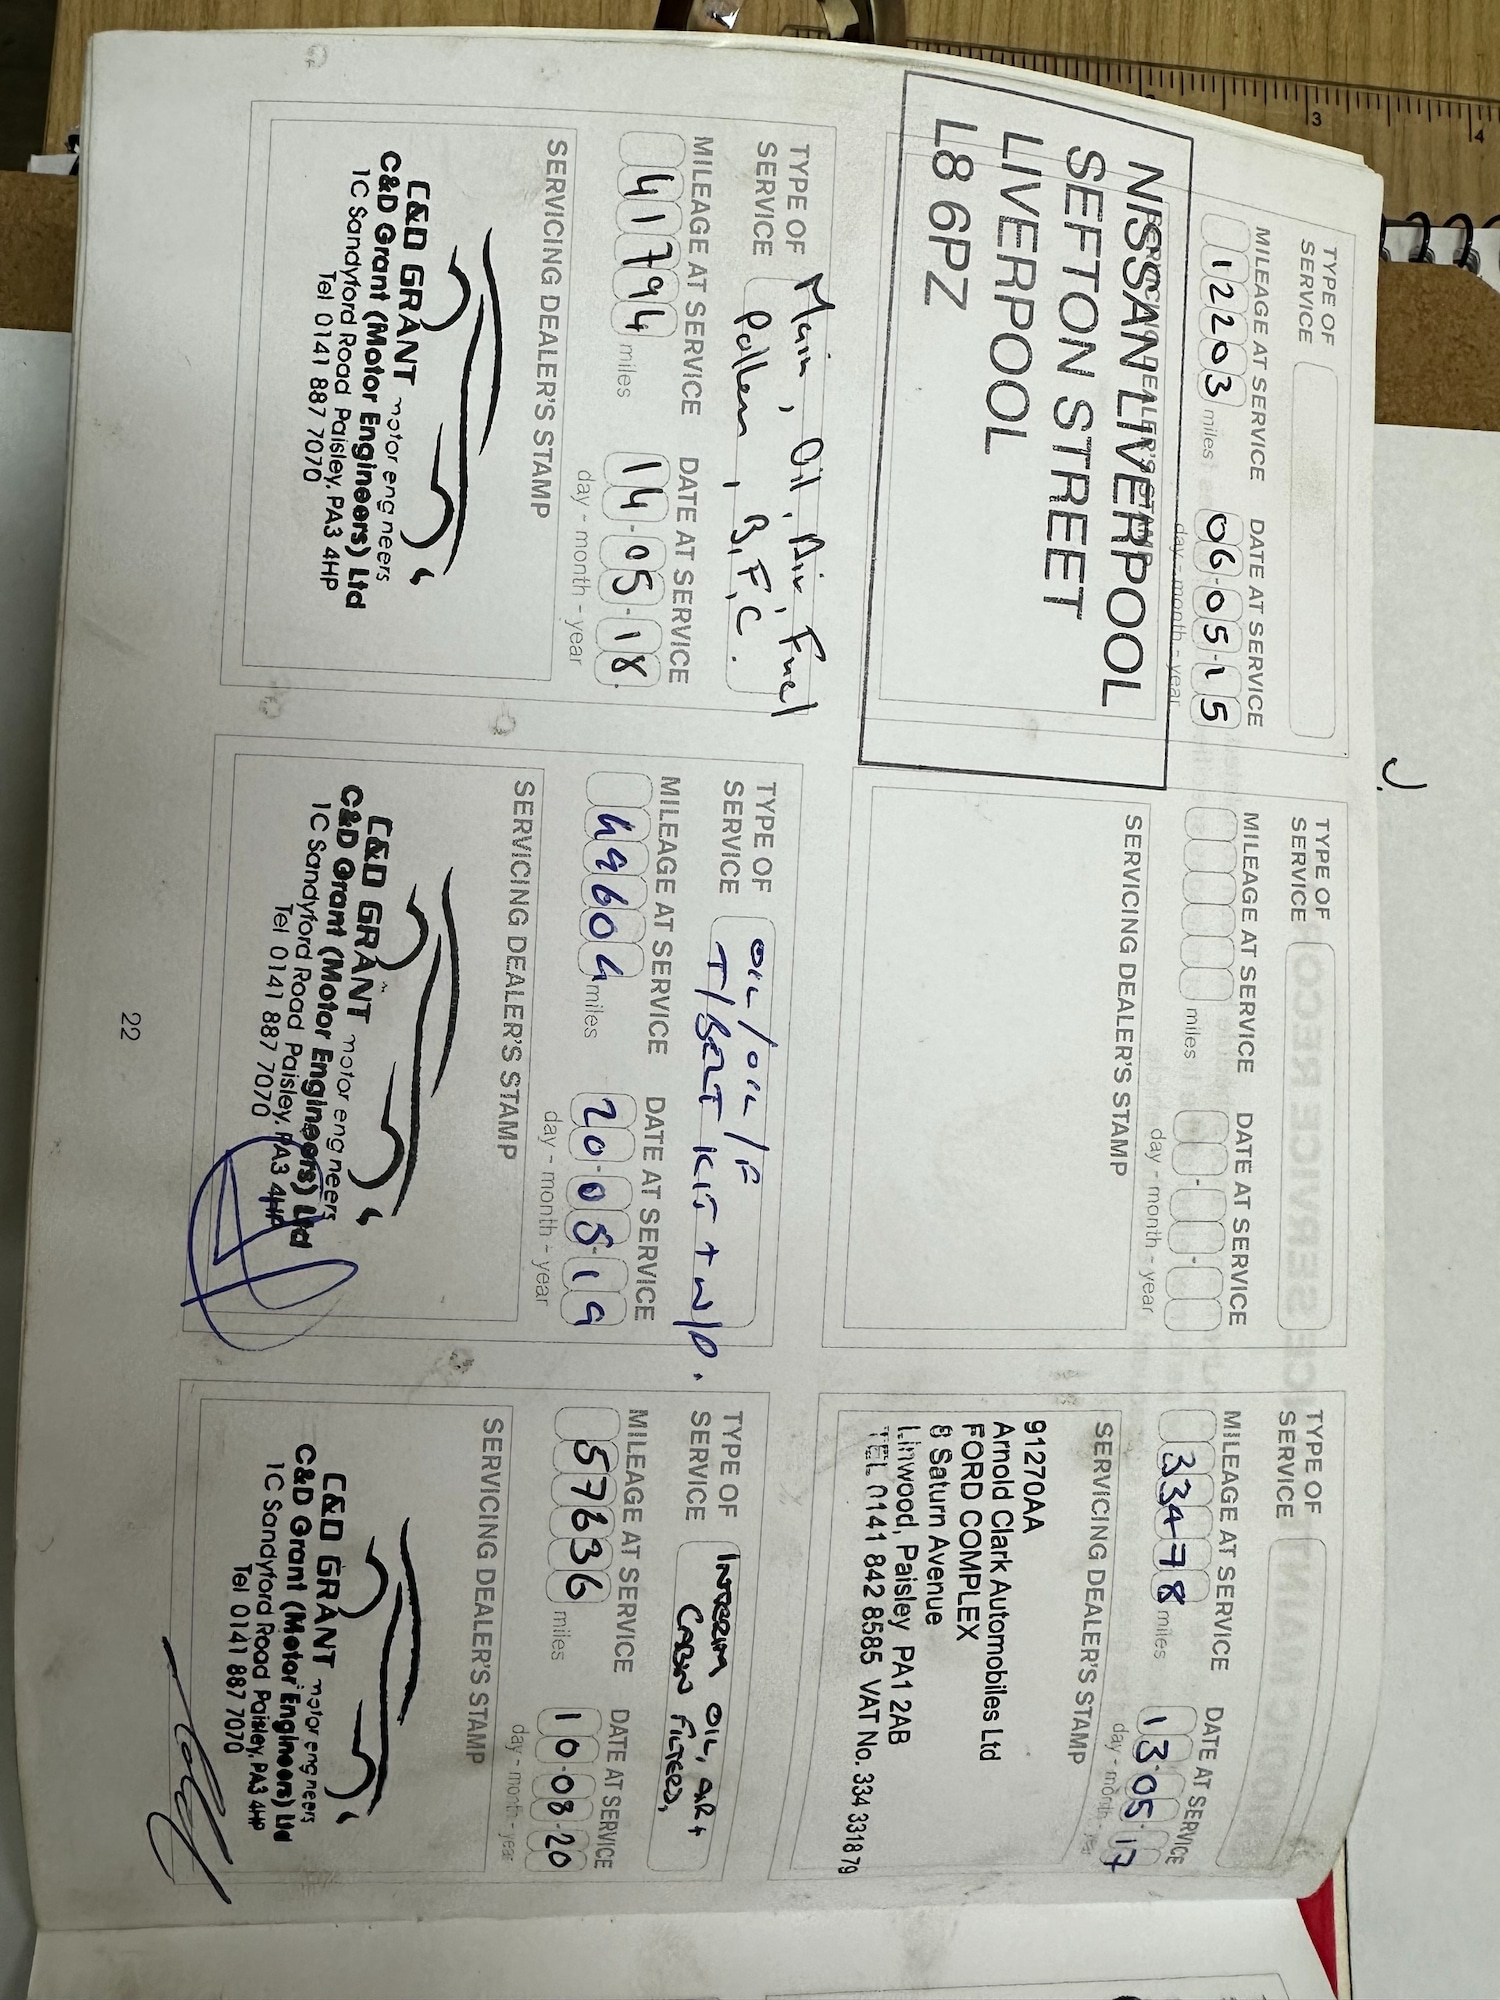 TYPE OF
SERVICE
MILEAGE AT SERVICE DATE AT SERVICE
12203 miles 06-05-15
day - month - year
NISSAN LIVERPOOL
SEFTON STREET
LIVERPOOL
L8 6PZ
TYPE OF
SERVICE
MILEAGE AT SERVICE DATE AT SERVICE
miles
day - month - year
SERVICING DEALER'S STAMP
TYPE OF
SERVICE
MILEAGE AT SERVICE DATE AT SERVICE
33478 miles 13-05-17
day - month - year
SERVICING DEALER'S STAMP
91270AA
Arnold Clark Automobiles Ltd
FORD COMPLEX
8 Saturn Avenue
Linwood, Paisley PA1 2AB
TEL 0141 842 8585 VAT No. 334 3318 79
TYPE OF
SERVICE
Main, Oil, Air, Fuel
Pollen, B.F.C.
MILEAGE AT SERVICE DATE AT SERVICE
41794 miles 14-05-18.
day - month - year
SERVICING DEALER'S STAMP
C&D GRANT motor engineers
C&D Grant (Motor Engineers) Ltd
1C Sandyford Road Paisley, PA3 4HP
Tel 0141 887 7070
TYPE OF
SERVICE
OIL/OIL/F
T/BELT KIT + W/P.
MILEAGE AT SERVICE DATE AT SERVICE
49604 miles 20-05-19
day - month - year
SERVICING DEALER'S STAMP
C&D GRANT motor engineers
C&D Grant (Motor Engineers) Ltd
1C Sandyford Road Paisley, PA3 4HP
Tel 0141 887 7070
TYPE OF
SERVICE
INTERIM OIL, AIR +
CABIN FILTERS,
MILEAGE AT SERVICE DATE AT SERVICE
57636 miles 10-08-20
day - month - year
SERVICING DEALER'S STAMP
C&D GRANT motor engineers
C&D Grant (Motor Engineers) Ltd
1C Sandyford Road Paisley, PA3 4HP
Tel 0141 887 7070
22
3
4